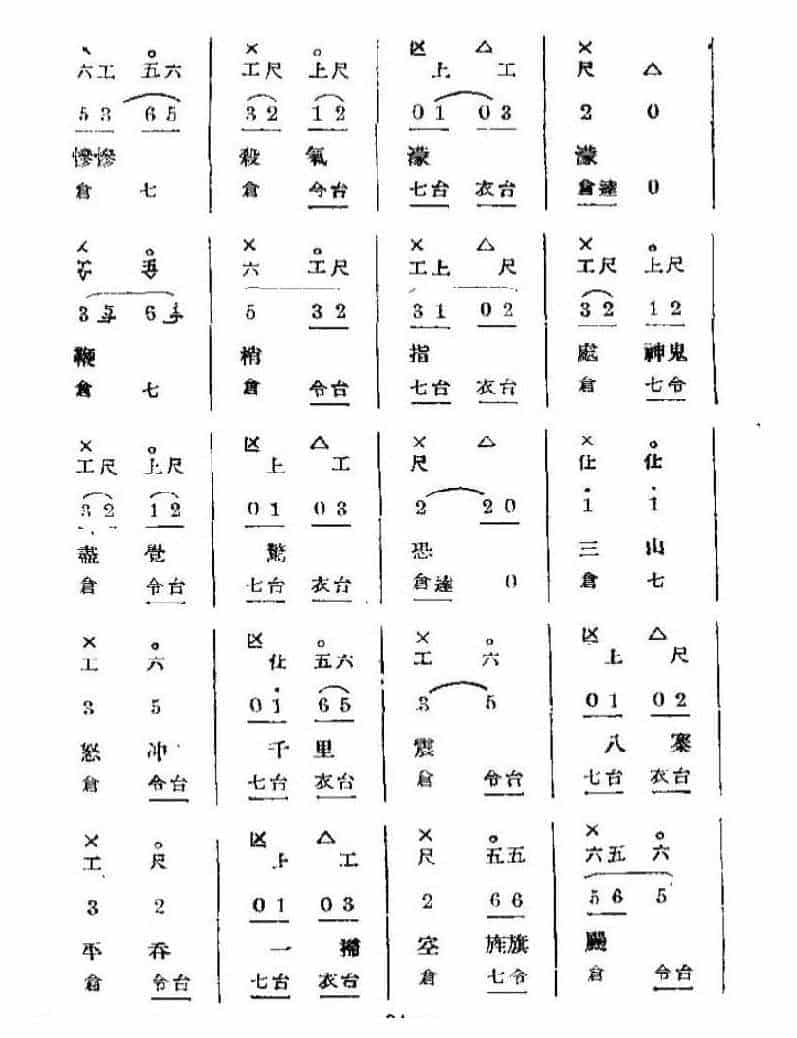 × 。 × 。 区 △ × △
六工 五六 工尺 上尺 上 工 尺
5 3 6 5 3 2 1 2 0 1 0 3 2 0
慘慘 殺 氣 濛 濛
倉 七 倉 令台 七台 衣台 倉達 0
× 。 × 。 × △ × 。
六 工尺 工上 尺 工尺 上尺
3 6 5 3 2 3 1 0 2 3 2 1 2
鞭 梢 指 處 神鬼
倉 七 倉 令台 七台 衣台 倉 七令
× 。 区 △ × △ × 。
工尺 上尺 上 工 尺 仩 仩
3 2 1 2 0 1 0 3 2 2 0 1̇ 1̇
盡 覺 驚 恐 三 山
倉 令台 七台 衣台 倉達 0 倉 七
× 。 区 。 × 。 区 △
工 六 仩 五六 工 六 上 尺
3 5 0 1̇ 6 5 3 5 0 1 0 2
怒 冲 千 里 震 八 寨
倉 令台 七台 衣台 倉 令台 七台 衣台
× 。 区 △ × 。 × 。
工 尺 上 工 尺 五五 六五 六
3 2 0 1 0 3 2 6 6 5 6 5
平 吞 一 掃 空 旌旗
倉 令台 七台 衣台 倉 七令 倉 令台